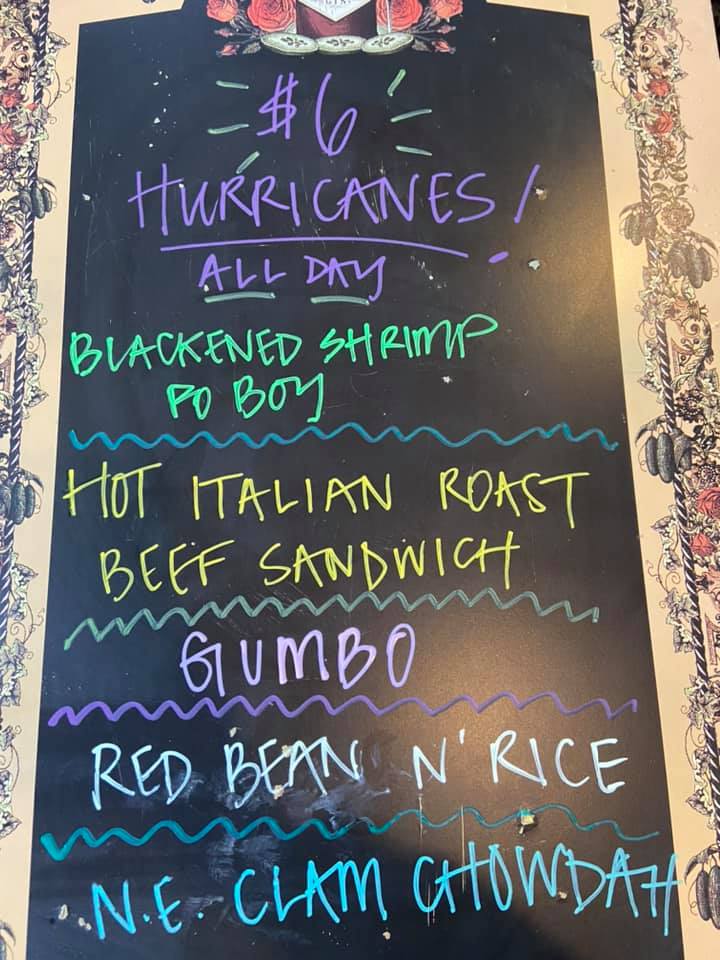 $6
HURRICANES!
ALL DAY
BLACKENED SHRIMP
PO BOY
HOT ITALIAN ROAST
BEEF SANDWICH
GUMBO
RED BEAN N' RICE
N.E. CLAM CHOWDAH